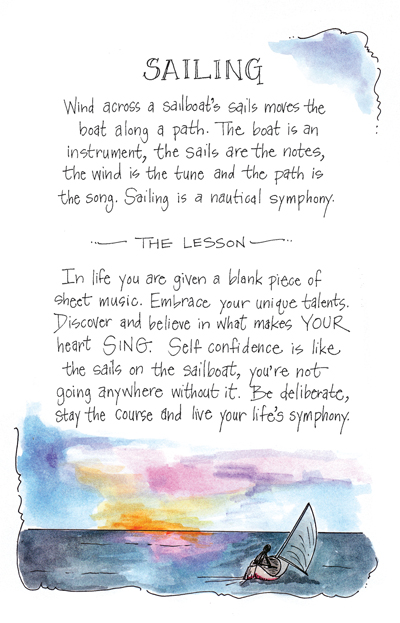 SAILING
Wind across a sailboat's sails moves the
boat along a path. The boat is an
instrument, the sails are the notes,
the wind is the tune and the path is
the song. Sailing is a nautical symphony.
THE LESSON
In life you are given a blank piece of
sheet music. Embrace your unique talents.
Discover and believe in what makes YOUR
heart SING. Self confidence is like
the sails on the sailboat, you're not
going anywhere without it. Be deliberate,
stay the course and live your life's symphony.